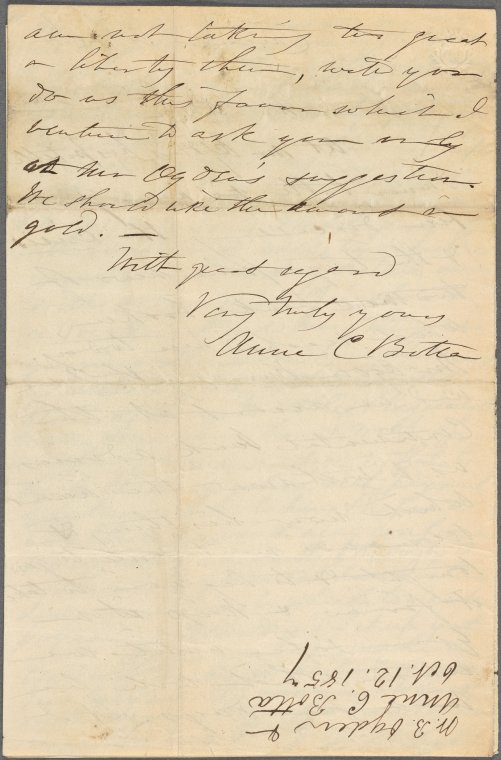 am not taking too great
a liberty then, will you
do us this favor which I
venture to ask you only
at Mr Ogdens suggestion.
We should like the amount in
gold. —
With great regard
Very truly yours
Anne C Botta
W. B. Ogden &
Anne C. Botta
Oct. 12. 1857